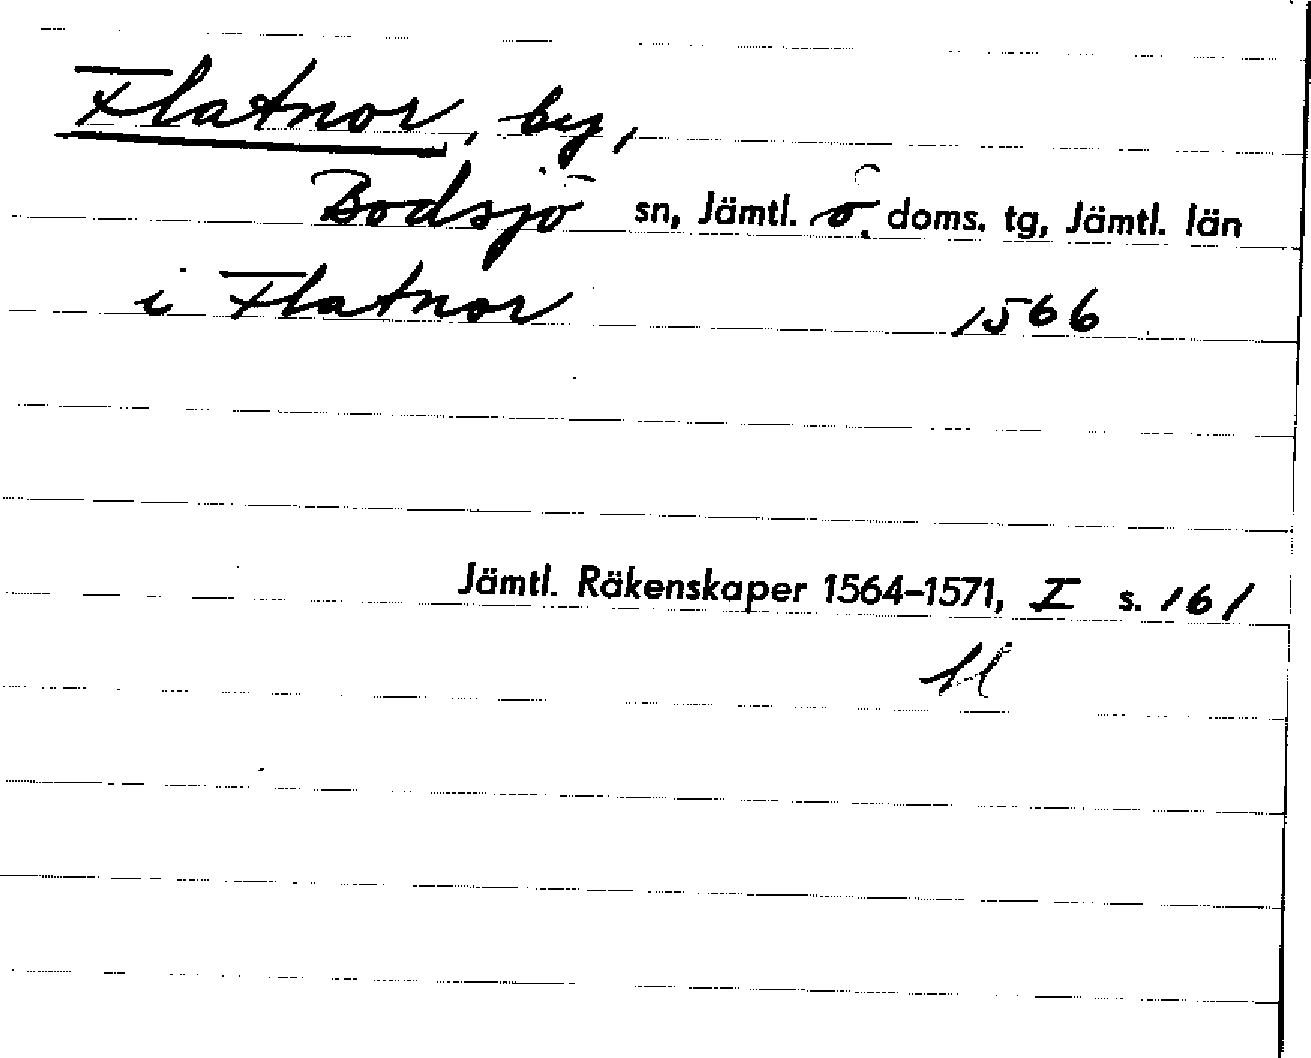 Flatnor, by,
Bodsjö sn, Jämtl. ö. doms. tg, Jämtl. län
i Flatnor 1566
Jämtl. Räkenskaper 1564–1571, I s. 161